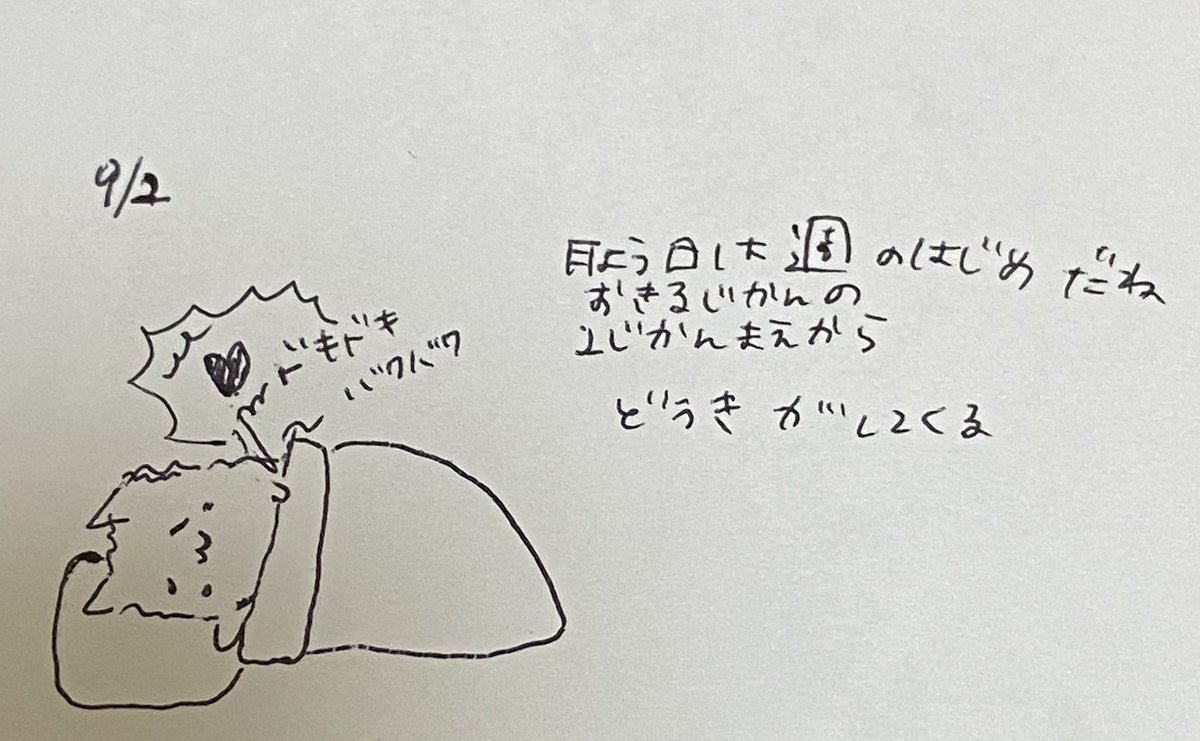 9/2
月よう日は週のはじめだね
おきるじかんの
2じかんまえから
どうきがしてくる
ドキドキ
バクバク